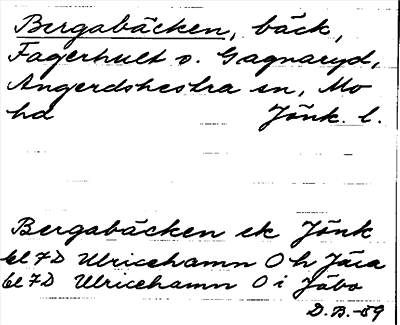 Bergabäcken, bäck,
Fagerhult o. Gagnaryd,
Angerdshestra sn, Mo
hd Jönk. l.
Bergabäcken ek Jönk
bl 7D Ulricehamn 0 h Jära
bl 7D Ulricehamn 0 i Jäbo
D.B.-89